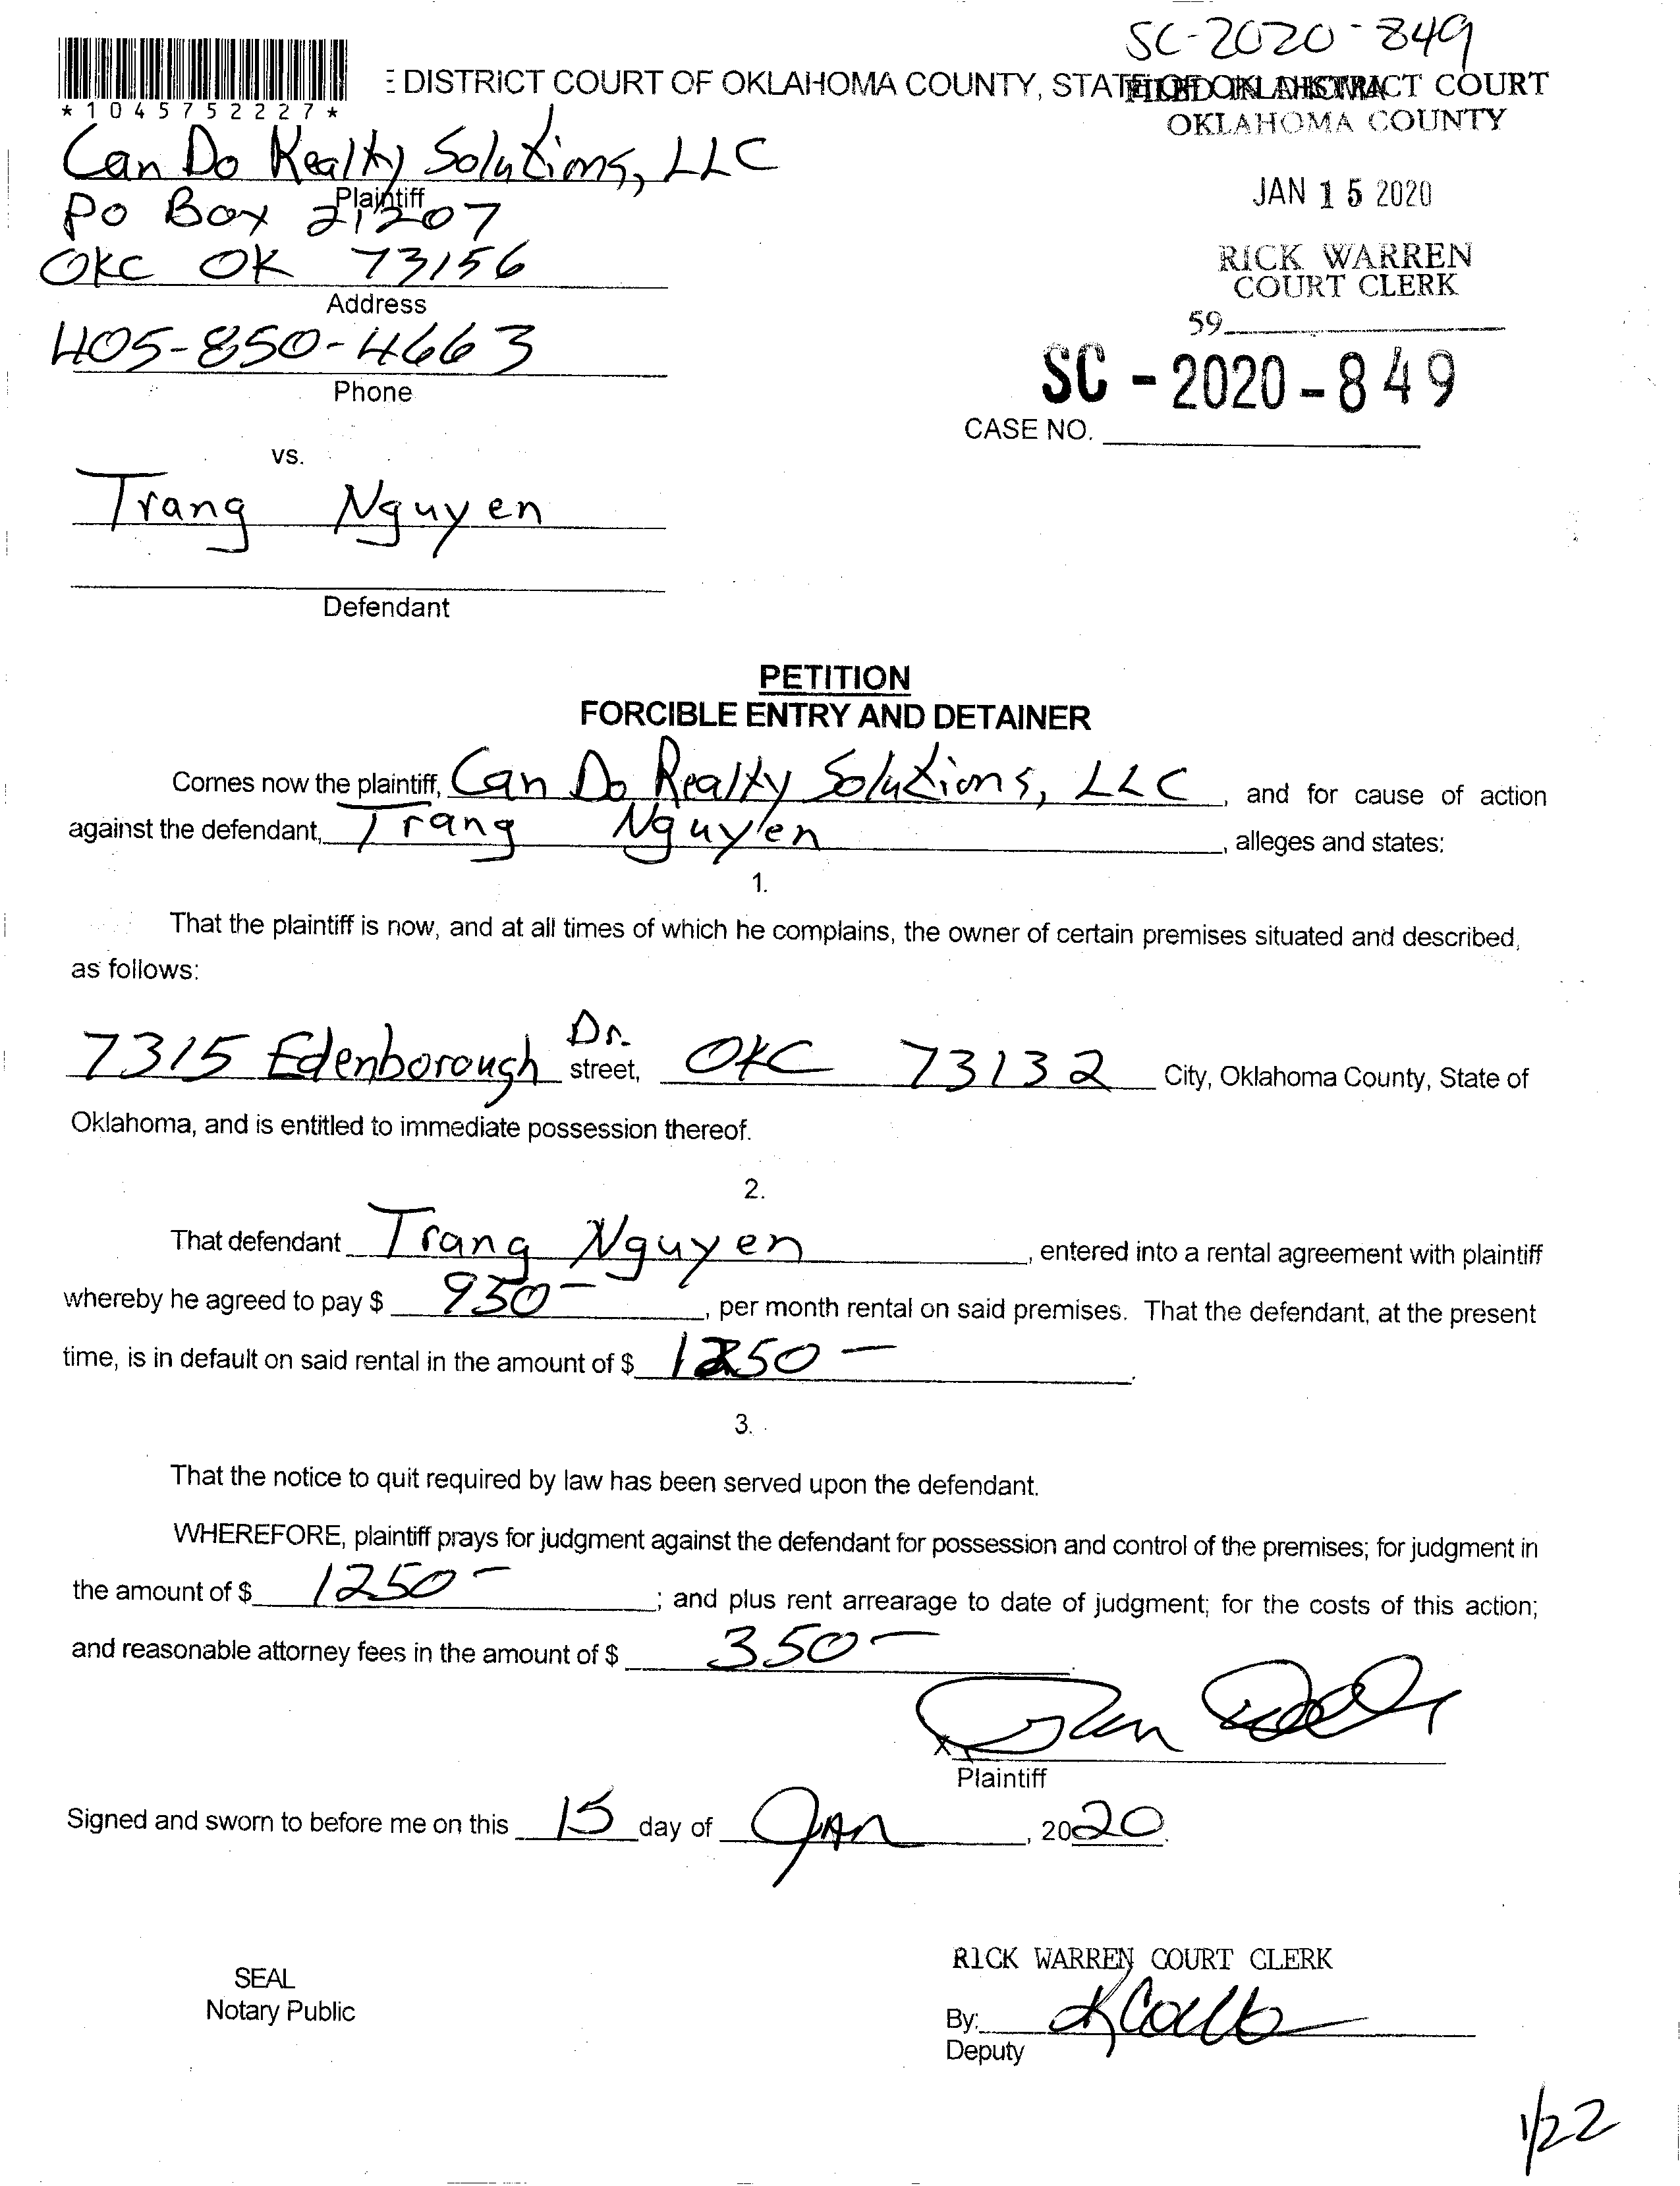 SC-2020-849
*1045752227*
E DISTRICT COURT OF OKLAHOMA COUNTY, STATE OF OKLAHOMA
FILED IN DISTRICT COURT
OKLAHOMA COUNTY
Can Do Realty Solutions, LLC
Plaintiff
PO Box 21207
JAN 15 2020
OKC OK 73156
Address
RICK WARREN
COURT CLERK
59
405-850-4663
Phone
SC - 2020 - 849
CASE NO.
vs.
Trang Nguyen
Defendant
PETITION
FORCIBLE ENTRY AND DETAINER
Comes now the plaintiff, Can Do Realty Solutions, LLC, and for cause of action
against the defendant, Trang Nguyen, alleges and states:
1.
That the plaintiff is now, and at all times of which he complains, the owner of certain premises situated and described,
as follows:
7315 Edenborough Dr. street, OKC 73132 City, Oklahoma County, State of
Oklahoma, and is entitled to immediate possession thereof.
2.
That defendant Trang Nguyen, entered into a rental agreement with plaintiff
whereby he agreed to pay $ 950-, per month rental on said premises. That the defendant, at the present
time, is in default on said rental in the amount of $ 1250-.
3.
That the notice to quit required by law has been served upon the defendant.
WHEREFORE, plaintiff prays for judgment against the defendant for possession and control of the premises; for judgment in
the amount of $ 1250-; and plus rent arrearage to date of judgment; for the costs of this action;
and reasonable attorney fees in the amount of $ 350-.
X
Plaintiff
Signed and sworn to before me on this 15 day of JAN, 2020.
SEAL
Notary Public
RICK WARREN COURT CLERK
By:
Deputy
1/22